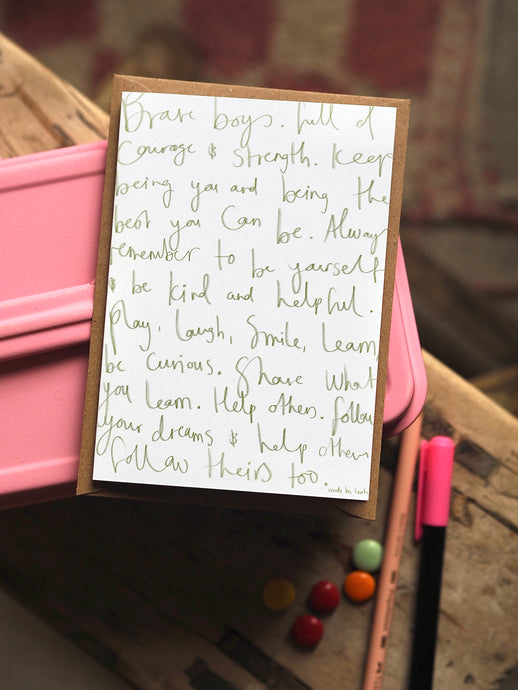 Brave boys. Full of
Courage & Strength. Keep
being you and being the
best you Can be. Always
remember to be yourself
& be kind and helpful.
Play, Laugh, Smile, Learn
be Curious. Share What
you Learn. Help others. Follow
your dreams & help others
follow theirs too.